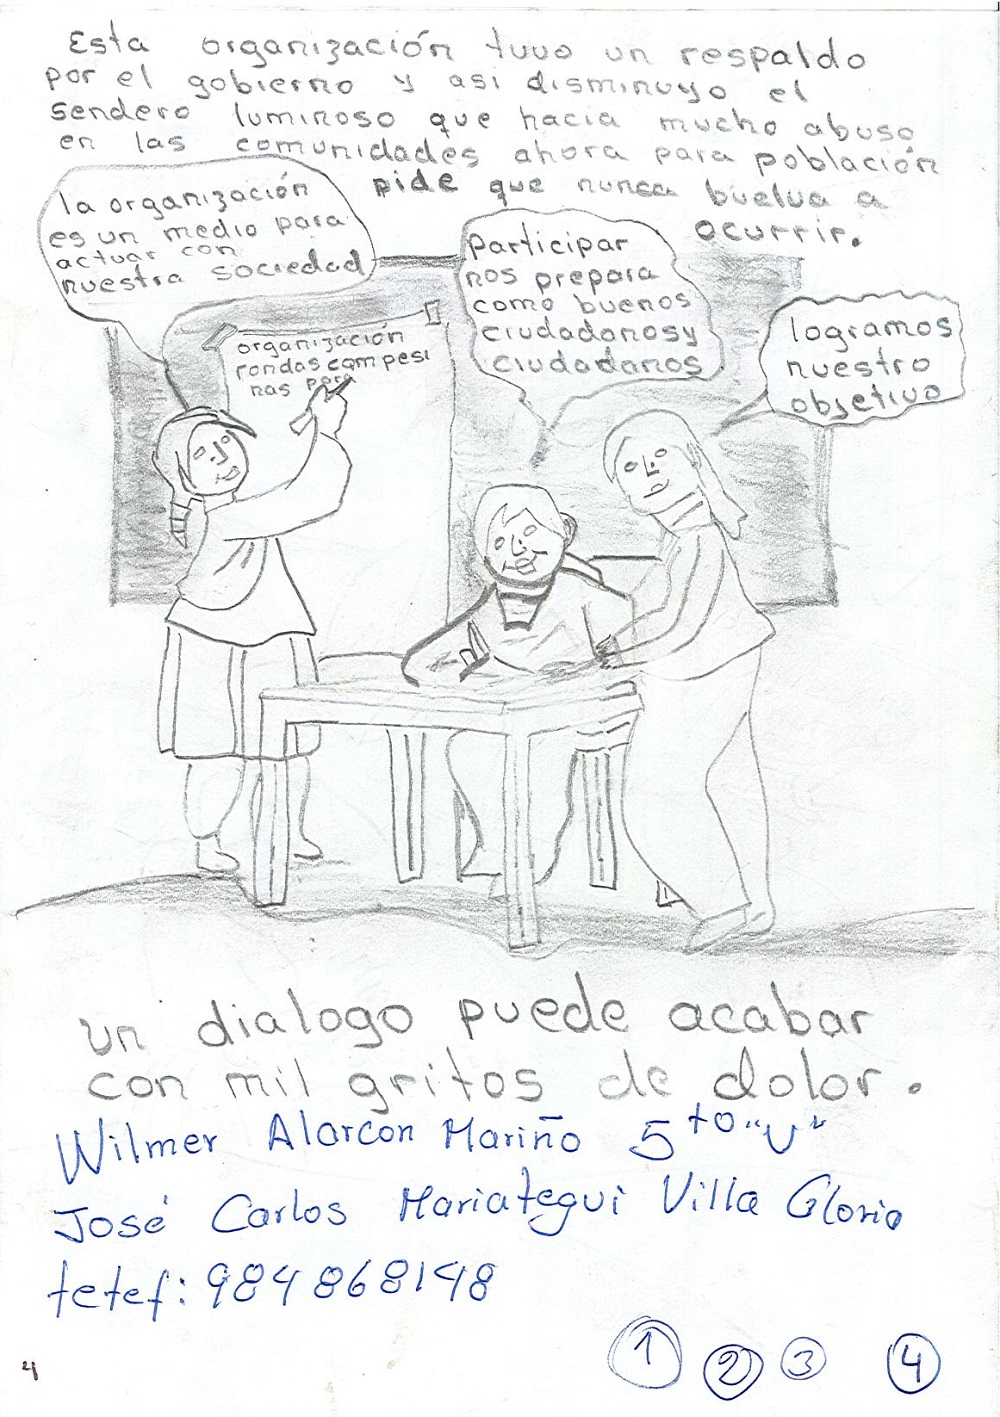 Esta organización tuvo un respaldo
por el gobierno y asi disminuyo el
sendero luminoso que hacia mucho abuso
en las comunidades ahora para población
pide que nunca buelva a
ocurrir.
la organización
es un medio para
actuar con
nuestra sociedad
Participar
nos prepara
como buenos
ciudadanos y
ciudadanos
logramos
nuestro
objetivo
organización
rondas campesi
nas para
un dialogo puede acabar
con mil gritos de dolor.
Wilmer Alarcon Mariño 5to "U"
José Carlos Mariategui Villa Gloria
telef: 984868148
1 2 3 4
4